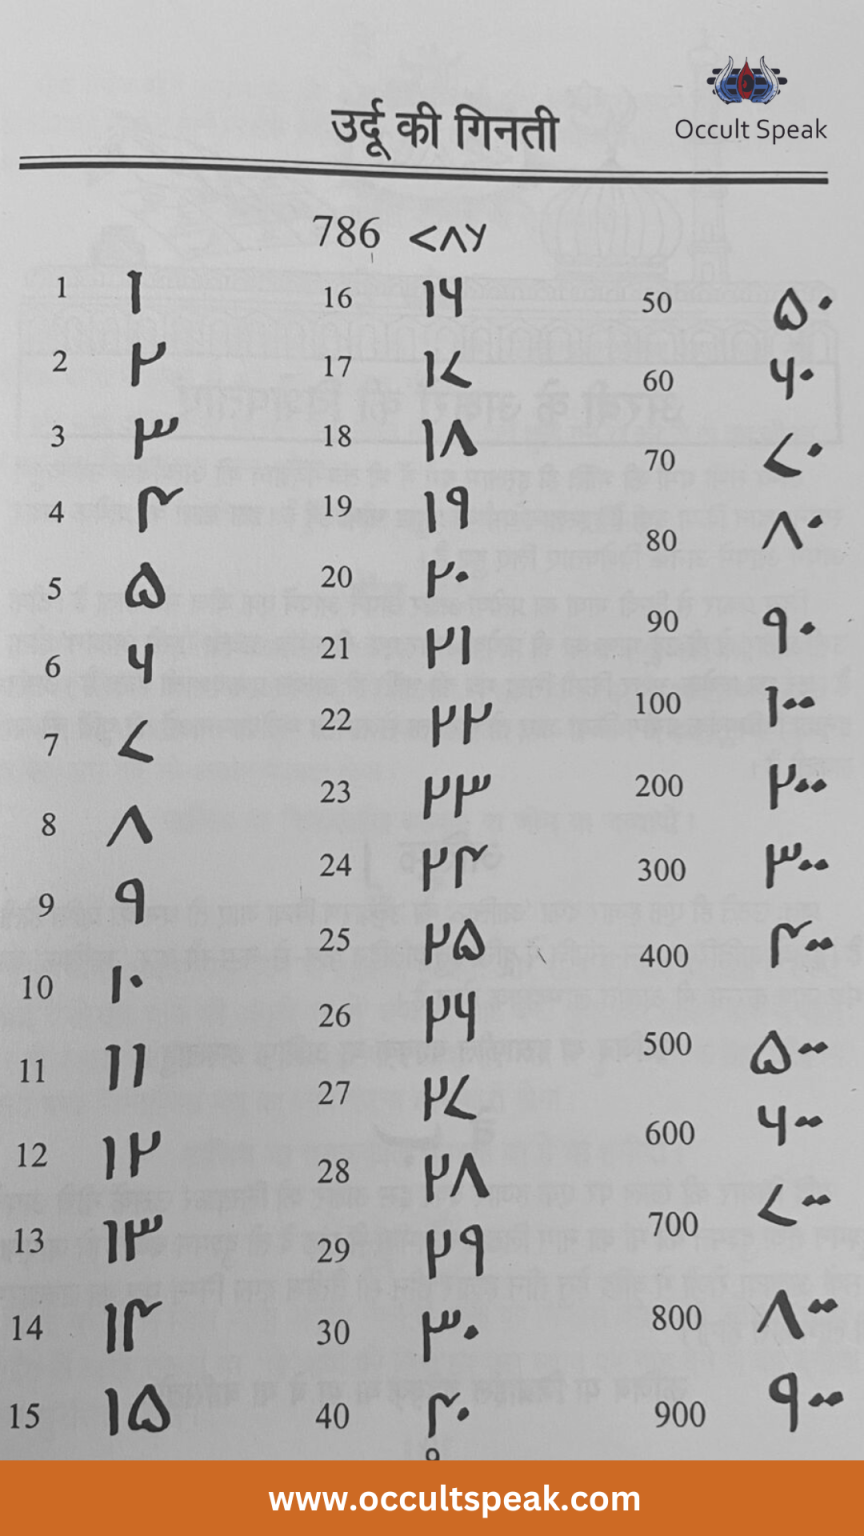 Occult Speak
उर्दू की गिनती
786 ۷۸۶
1 ۱
2 ۲
3 ۳
4 ۴
5 ۵
6 ۶
7 ۷
8 ۸
9 ۹
10 ۱۰
11 ۱۱
12 ۱۲
13 ۱۳
14 ۱۴
15 ۱۵
16 ۱۶
17 ۱۷
18 ۱۸
19 ۱۹
20 ۲۰
21 ۲۱
22 ۲۲
23 ۲۳
24 ۲۴
25 ۲۵
26 ۲۶
27 ۲۷
28 ۲۸
29 ۲۹
30 ۳۰
40 ۴۰
50 ۵۰
60 ۶۰
70 ۷۰
80 ۸۰
90 ۹۰
100 ۱۰۰
200 ۲۰۰
300 ۳۰۰
400 ۴۰۰
500 ۵۰۰
600 ۶۰۰
700 ۷۰۰
800 ۸۰۰
900 ۹۰۰
www.occultspeak.com